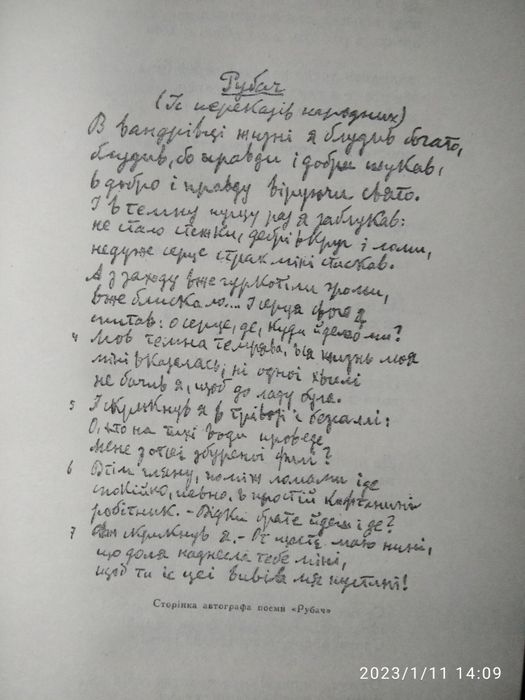 Рубач
(Із переказів народних)
В вандрівці жизні я блудив богато,
блудив, бо правди і добра шукав,
в добро і правду віруючи свято.
І в темну пущу раз я заблукав:
не стало стежки, дебрі вкруг і ломи,
недуже серце страх міні стискав.
А з заходу вже гуркотіли громи,
вже блискало... І серця свого я
питав: о серце, де, куди йдемо ми?
4 Мов темна темрява, вся жизнь моя
міні вказалась, ні одної хвилі
не бачив я, щоб до ладу була.
5 І кликнув я в трівозі і безсиллі:
О, хто на тихі води проведе
мене з отсеї збуреної филі?
6 Втім гляну, поміж ломами іде
спокійно, певно, в простій
робітник. – Відки, брате, йдеш і де?
7 кликнув я. – От щастє маю нині,
що доля наднесла тебе міні,
щоб ти із цеї вивів мя пустині!
Сторінка автографа поеми «Рубач»
2023/1/11 14:09